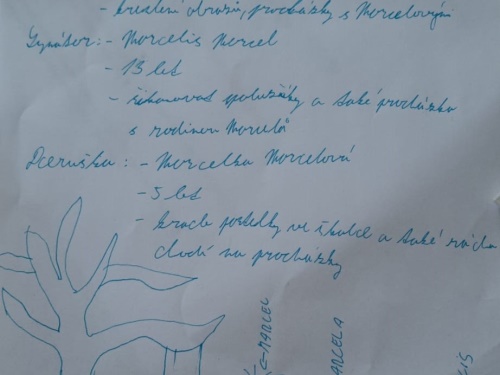 - kreslení obrazů, procházky s Marcelovými
Synátor: - Marcelis Marcel
- 13 let
- šikanovat spolužáky a také procházka
s rodinou Marcelů
Dceruška: - Marcelka Marcelová
- 5 let
- krade pastelky ve školce a také ráda
chodí na procházky
MARCEL
MARCELA
LIS